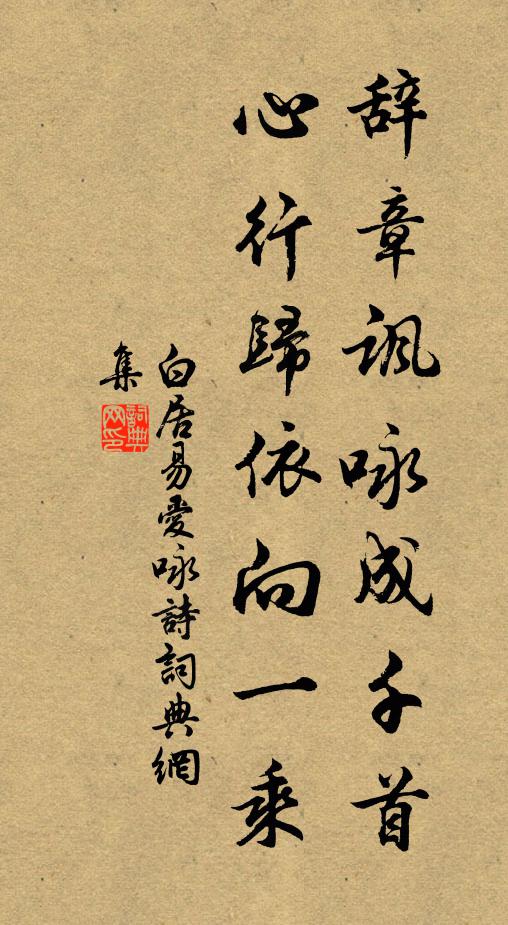 辞章諷咏成千首
心行歸依向一乘
白居易愛咏詩詞典網
集
詞典
网印